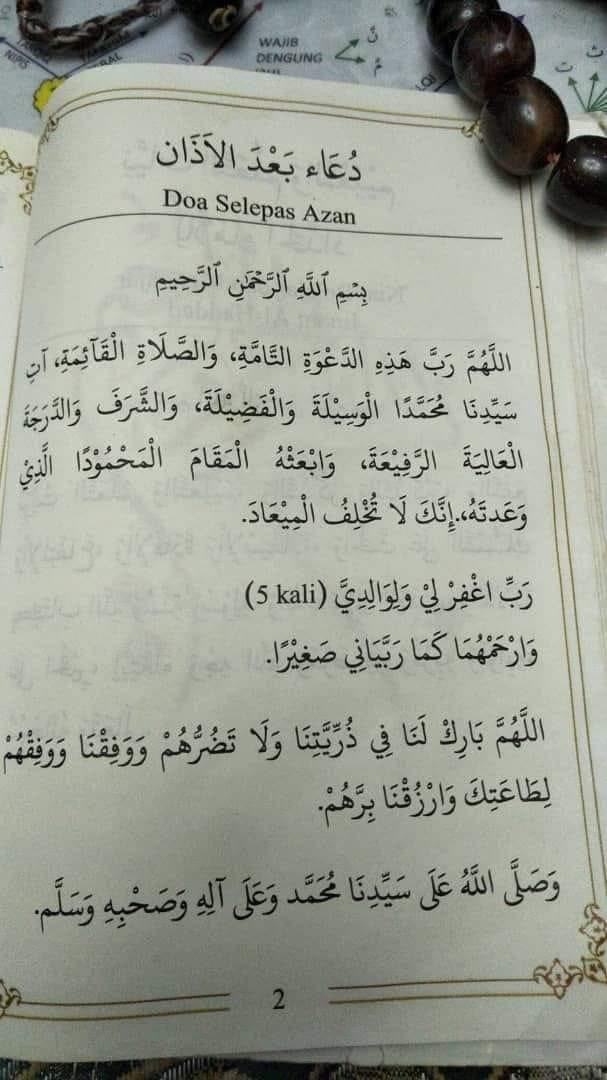 NIPIS
WAJIB
DENGUNG
ن
م
ت
ث
دُعَاء بَعْدَ الاَذَان
Doa Selepas Azan
بِسْمِ اللَّهِ الرَّحْمَٰنِ الرَّحِيمِ
اللَّهُمَّ رَبَّ هَذِهِ الدَّعْوَةِ التَّامَّةِ، وَالصَّلَاةِ الْقَآئِمَةِ، آتِ
سَيِّدِنَا مُحَمَّدًا الْوَسِيْلَةَ وَالْفَضِيْلَةَ، وَالشَّرَفَ وَالدَّرَجَةَ
الْعَالِيَةَ الرَّفِيْعَةَ، وَابْعَثْهُ الْمَقَامَ الْمَحْمُوْدًا الَّذِيْ
وَعَدتَهُ، إِنَّكَ لَا تُخْلِفُ الْمِيْعَادَ.
رَبِّ اغْفِرْ لِيْ وَلِوَالِدِيَّ (5 kali)
وَارْحَمْهُمَا كَمَا رَبَّيَانِي صَغِيْرًا.
اللَّهُمَّ بَارِكْ لَنَا فِي ذُرِّيَّتِنَا وَلَا تَضُرُّهُمْ وَوَفِقْنَا وَوَفِقْهُمْ
لِطَاعَتِكَ وَارْزُقْنَا بِرَّهُمْ.
وَصَلَّى اللَّهُ عَلَى سَيِّدِنَا مُحَمَّد وَعَلَى آلِهِ وَصَحْبِهِ وَسَلَّم.
2